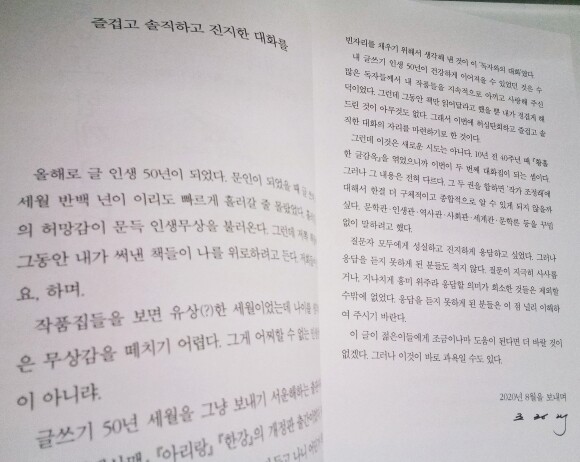 즐겁고 솔직하고 진지한 대화를
올해로 글 인생 50년이 되었다. 문인이 되었을 때
세월 반백 년이 이리도 빠르게 흘러갈 줄 몰랐었다.
의 허망감이 문득 인생무상을 불러온다. 그런데
그동안 내가 써낸 책들이 나를 위로하려고 든다.
요, 하며.
작품집들을 보면 유상(?)한 세월이었는데 나이를
은 무상감을 떼치기 어렵다. 그게 어찌할 수 없는
이 아니랴.
글쓰기 50년 세월을 그냥 보내기 서운해하는
『아리랑』『한강』의 개정판
빈자리를 채우기 위해서 생각해 낸 것이 이 '독자와의 대화'였다.
내 글쓰기 인생 50년이 건강하게 이어져올 수 있었던 것은 수
많은 독자들께서 내 작품들을 지속적으로 아끼고 사랑해 주신
덕이었다. 그런데 그동안 책만 읽어달라고 했을 뿐 내가 정겹게 해
드린 것이 아무것도 없다. 그래서 이번에 허심탄회하고 즐겁고 솔
직한 대화의 자리를 마련하기로 한 것이다.
그런데 이것은 새로운 시도는 아니다. 10년 전 40주년 때 『황홀
한 글감옥』을 엮었으니까 이번이 두 번째 대화집이 되는 셈이다.
그러나 그 내용은 전혀 다르다. 그 두 권을 합하면 '작가 조정래'에
대해서 한결 더 구체적이고 종합적으로 알 수 있게 되지 않을까
싶다. 문학관·인생관·역사관·사회관·세계관·문학론 등을 꾸밈
없이 말하려고 했다.
질문자 모두에게 성실하고 진지하게 응답하고 싶었다. 그러나
응답을 듣지 못하게 된 분들도 적지 않다. 질문이 지극히 사사롭
거나, 지나치게 흥미 위주라 응답할 의미가 희소한 것들은 제외할
수밖에 없었다. 응답을 듣지 못하게 된 분들은 이 점 널리 이해하
여 주시기 바란다.
이 글이 젊은이들에게 조금이나마 도움이 된다면 더 바랄 것이
없겠다. 그러나 이것이 바로 과욕일 수도 있다.
2020년 8월을 보내며
조정래